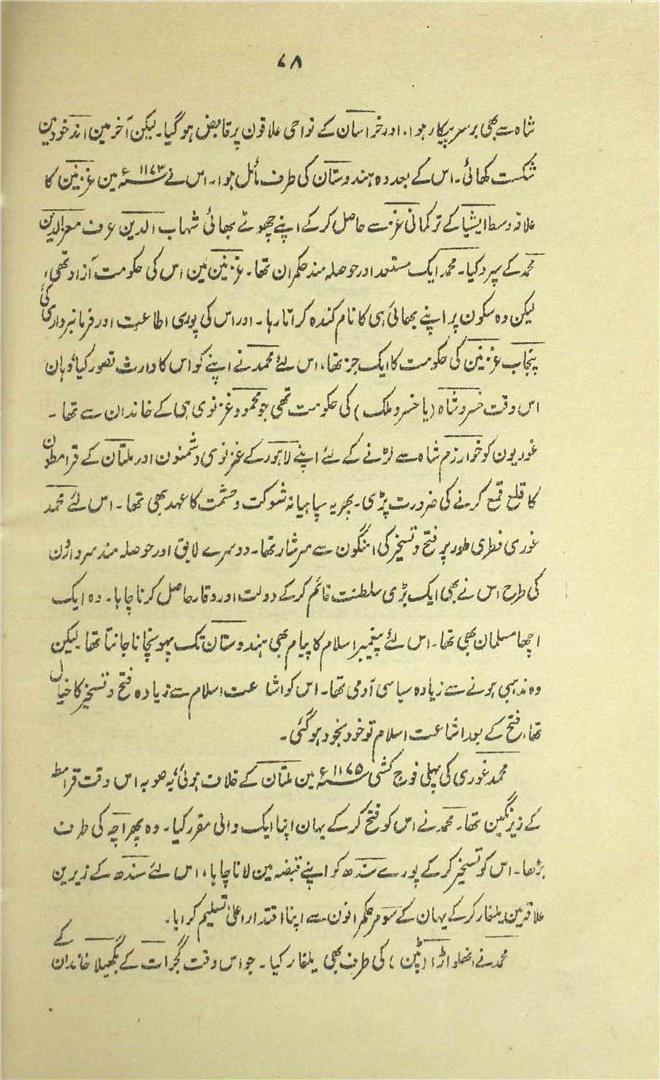 ۷۸
شاہ سے بھی برسر پیکار ہوا، اور خراسان کے نواحی علاقون پر قابض ہو گیا۔ لیکن آخر مین اندخود مین
شکست کھائی۔ اس کے بعد وہ ہندوستان کی طرف مائل ہوا۔ اس نے ۱۱۷۳ء مین غزنین کا
علاقہ وسط ایشیا کے ترکمانی غز سے حاصل کر کے اپنے چھوٹے بھائی شہاب الدین عرف معز الدین
محمد کے سپرد کیا۔ محمد ایک مستعد اور حوصلہ مند حکمران تھا۔ غزنین مین اس کی حکومت آزاد تھی،
لیکن وہ سکون پر اپنے بھائی ہی کا نام کندہ کراتا رہا۔ اور اس کی پوری اطاعت اور فرمانبرداری کی
پنجاب غزنین کی حکومت کا ایک جز تھا، اس لئے محمد نے اپنے کو اس کا وارث تصور کیا، وہان
اس وقت خسرو شاہ (یا خسرو ملک) کی حکومت تھی جو محمود غزنوی ہی کے خاندان سے تھا۔
غوریون کو خوارزم شاہ سے لڑنے کے لئے اپنے لاہور کے غزنوی دشمنون اور ملتان کے قرامطون
کا قلع قمع کرنے کی ضرورت پڑی۔ پھر یہ سپاہیانہ شوکت و حشمت کا عہد بھی تھا۔ اس لئے محمد
غوری فطری طور پر فتح و تسخیر کی امنگون سے سرشار تھا۔ دوسرے لایق اور حوصلہ مند سردارون
کی طرح اس نے بھی ایک بڑی سلطنت قائم کر کے دولت اور وقار حاصل کرنا چاہا۔ وہ ایک
اچھا مسلمان بھی تھا۔ اس لئے پیغمبر اسلام کا پیام بھی ہندوستان تک پہونچانا جانتا تھا۔ لیکن
وہ مذہبی ہونے سے زیادہ سیاسی آدمی تھا۔ اس کو اشاعت اسلام سے زیادہ فتح و تسخیر کا خیال
تھا، فتح کے بعد اشاعت اسلام تو خود بخود ہو گئی۔
محمد غوری کی پہلی فوج کشی ۱۱۷۵ء مین ملتان کے خلاف ہوئی، یہ صوبہ اس وقت قرامطہ
کے زیر نگین تھا۔ محمد نے اس کو فتح کر کے یہان اپنا ایک والی مقرر کیا۔ وہ پھر اچہ کی طرف
بڑھا۔ اس کو تسخیر کر کے پورے سندھ کو اپنے قبضہ مین لانا چاہا، اس لئے سندھ کے زیرین
علاقہ مین یلغار کر کے یہان کے سومر حکمرانون سے اپنا اقتدار اعلیٰ تسلیم کرایا۔
محمد نے انھلواڑا (پٹن) کی طرف بھی یلغار کیا۔ جو اس وقت گجرات کے بگھیلا خاندان کے